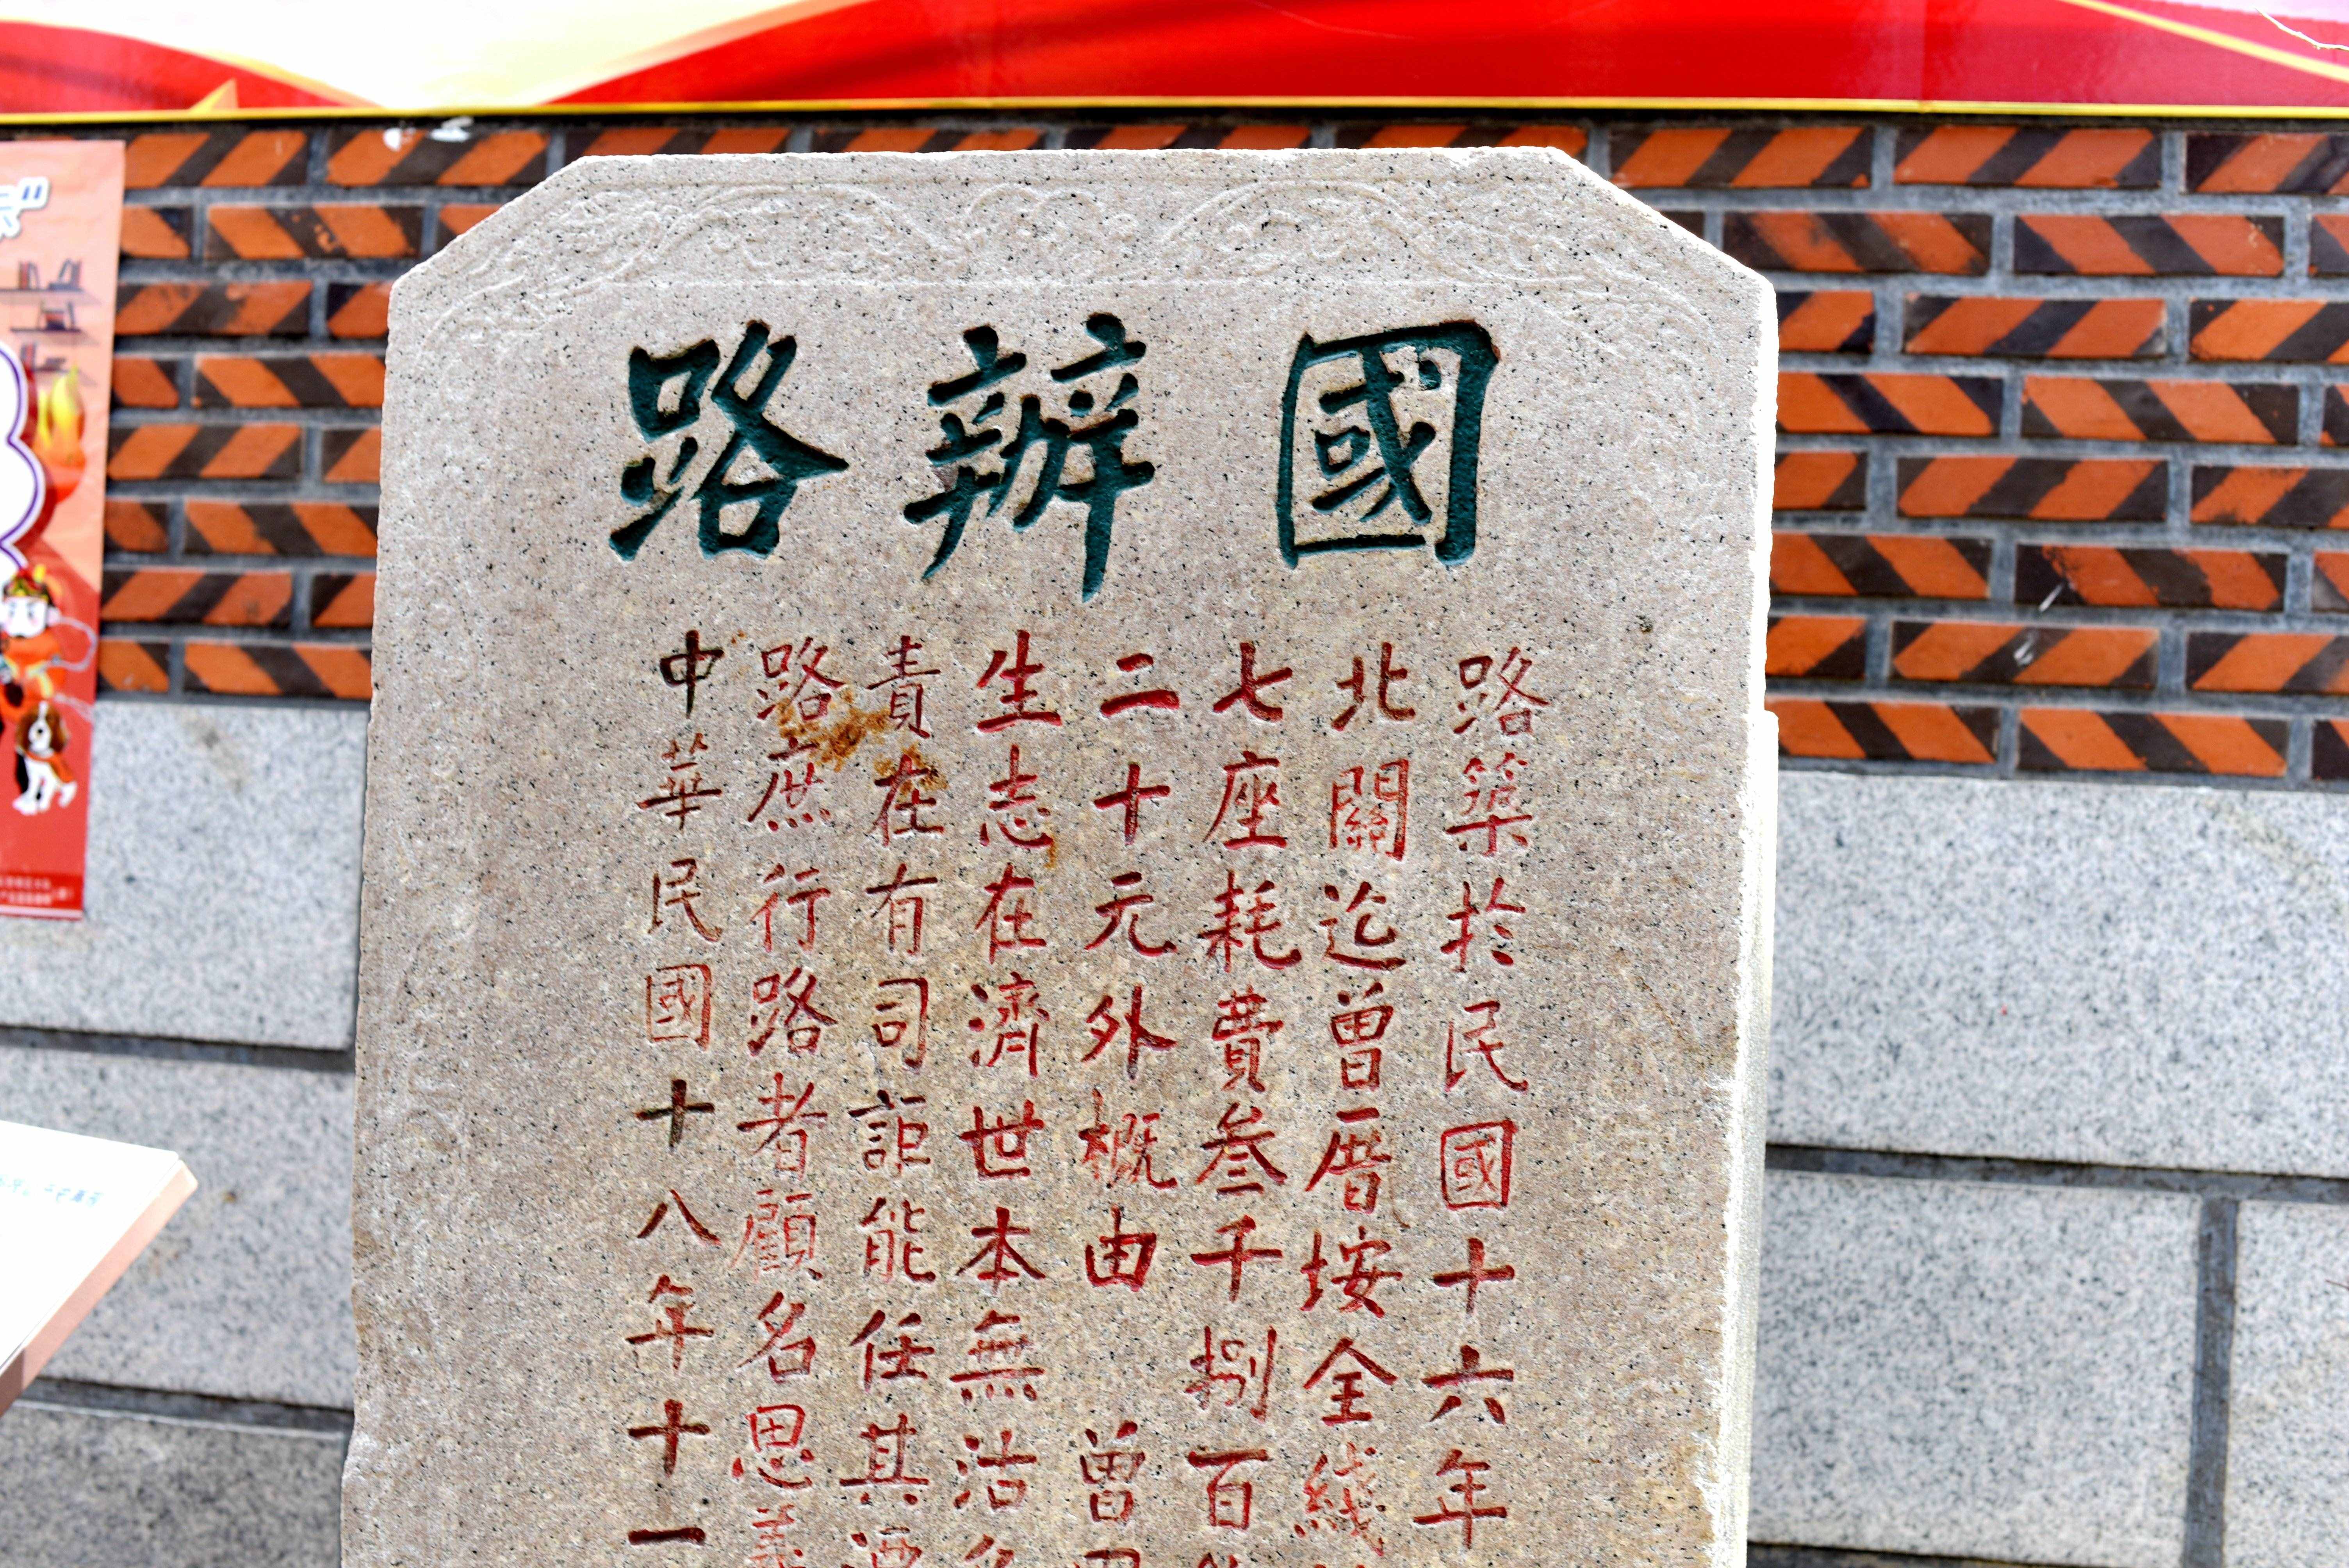 國辦路
路築於民國十六年
北關迄曾厝垵全綫
七座耗費叁千捌百
二十元外概由 曾
生志在濟世本無沽
責在有司詎能任其
路庶行路者顧名思義
中華民國十八年十一